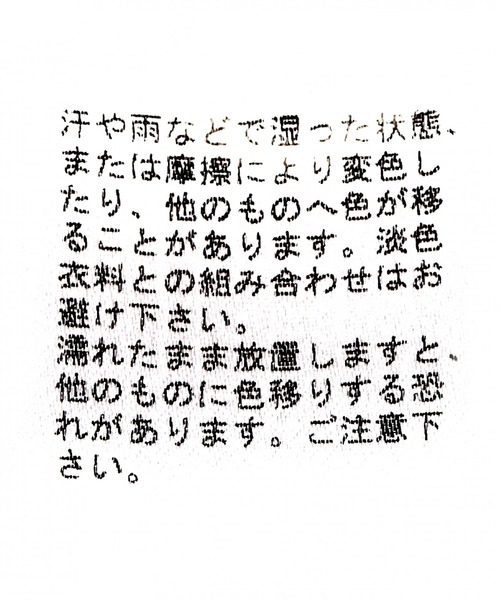 汗や雨などで湿った状態、
または摩擦により変色し
たり、他のものへ色が移
ることがあります。淡色
衣料との組み合わせはお
避け下さい。
濡れたまま放置しますと、
他のものに色移りする恐
れがあります。ご注意下
さい。